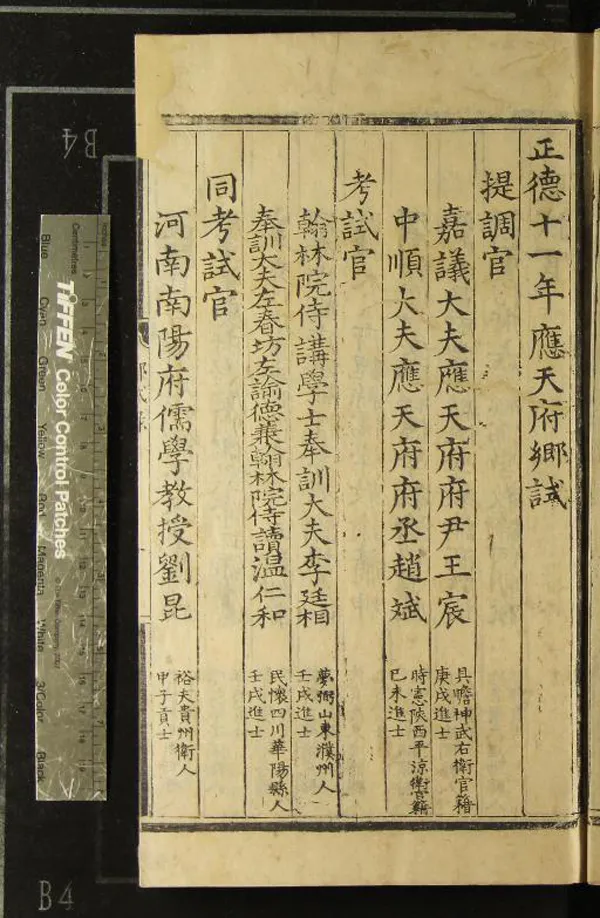 正德十一年應天府鄉試
提調官
嘉議大夫應天府府尹王宸
具瞻神武右衛官籍
庚戌進士
中順大夫應天府府丞趙斌
時憲陝西平涼衛官籍
己未進士
考試官
翰林院侍講學士奉訓大夫李廷相
夢弼山東濮州人
壬戌進士
奉訓大夫左春坊左諭德兼翰林院侍讀溫仁和
民懷四川華陽縣人
壬戌進士
同考試官
河南南陽府儒學教授劉昆
裕夫貴州衛人
甲子貢士
Inches
Centimetres
TIFFEN Color Control Patches
Blue
Cyan
Green
Yellow
Red
Magenta
White
3/Color
Black
B4
B4